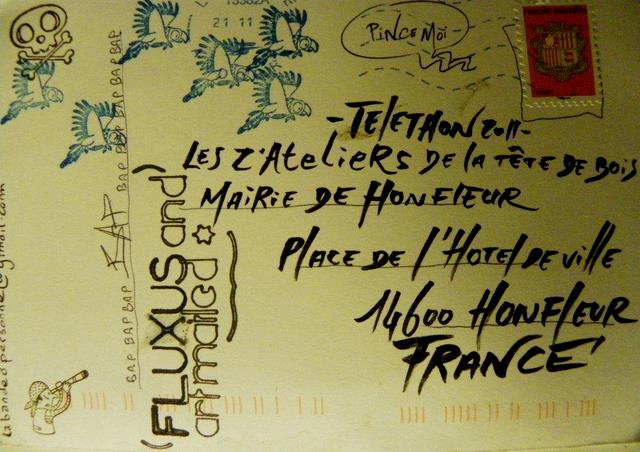 21 11
PiNCE MOi
-TELETHON 2011-
LES Z'AteLiERS DE lA TÊTE DE BOIS
MAiRiE DE HONFlEUR
PlACE DE l'HOtEl DE VillE
14600 HONFlEUR
FRANCE
BAP BAP BAP BAP BAP BAP BAP
(FLUXUS and)
artmailed
labandedpersonne@gmail.com